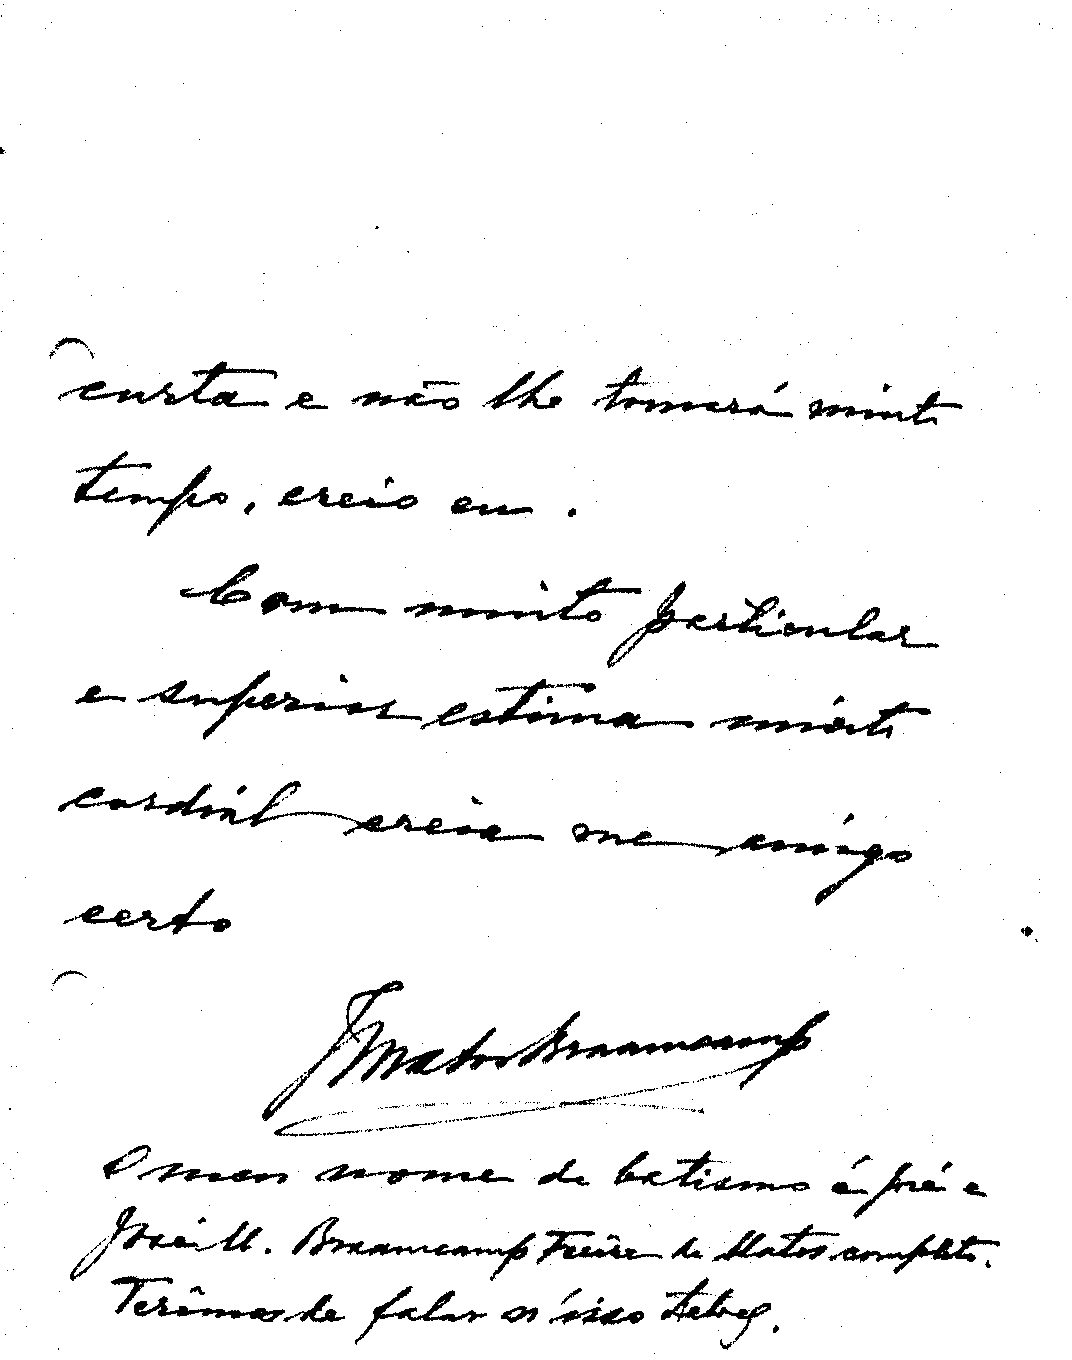 curta e não lhe tomará muito
tempo, creio eu.
Com muito particular
e superior estima muito
cordiál creia me amigo
certo
J Matos Braamcamp
O meu nome de batismo é José e
José M. Braamcamp Freire de Matos completo.
Terêmos de falar n'isso talvez.